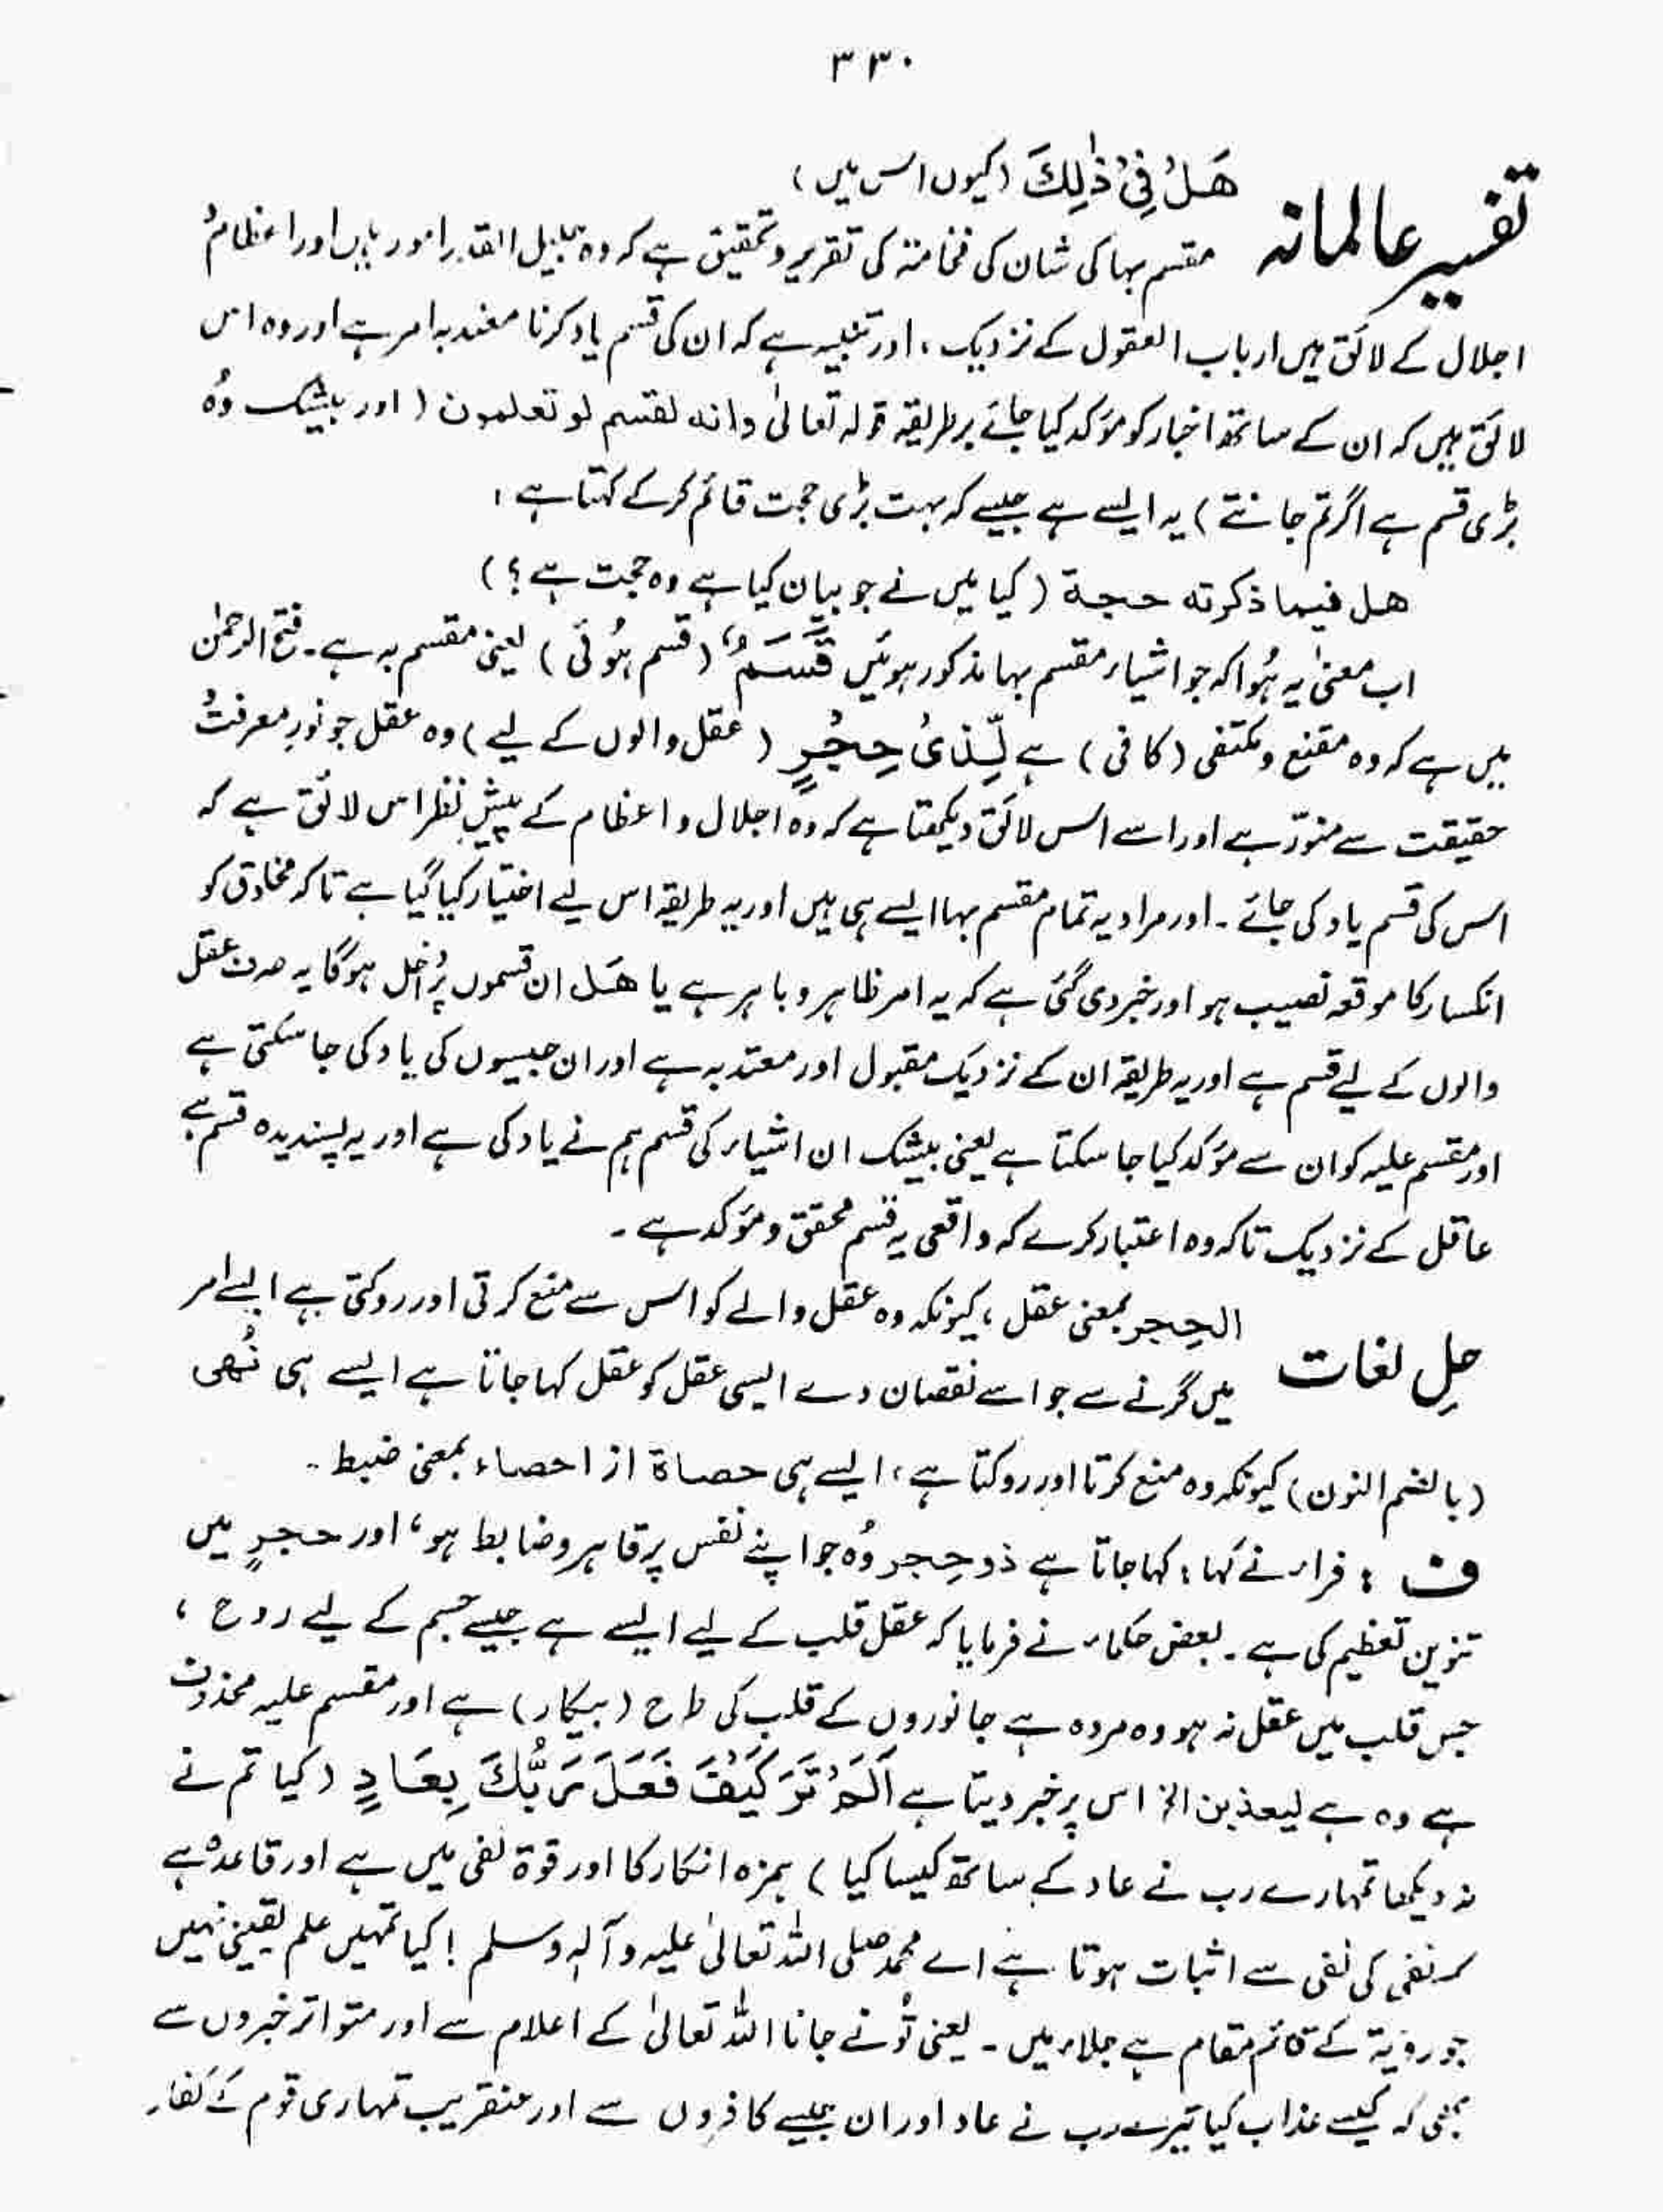 ۳۳۰
تفسیر عالمانہ
هَلْ فِیْ ذٰلِكَ (کیوں اس میں)
مقسم بہا کی شان کی فخامۃ کی تقریر و تحقیق ہے کہ وہ جلیل القدر امور ہیں اور اعظام و
اجلال کے لائق ہیں ارباب العقول کے نزدیک، اور تنبیہ ہے کہ ان کی قسم یاد کرنا معتد بہ امر ہے اور وہ اس
لائق ہیں کہ ان کے ساتھ اخبار کو مؤکد کیا جائے بر طریقہ قولہ تعالیٰ وانه لقسم لو تعلمون (اور بیشک وُہ
بڑی قسم ہے اگر تم جانتے) یہ ایسے ہے جیسے کہ بہت بڑی حجت قائم کر کے کہتا ہے :
هل فیما ذکرته حجة (کیا میں نے جو بیان کیا ہے وہ حجت ہے؟)
اب معنیٰ یہ ہُوا کہ جو اشیاء مقسم بہا مذکور ہوئیں قَسَمٌ (قسم ہُوئی) یعنی مقسم بہ ہے۔ فتح الرحمٰن
میں ہے کہ وہ مقنع و مکتفی (کافی) ہے لِّذِیْ حِجْرٍ (عقل والوں کے لیے) وہ عقل جو نورِ معرفت و
حقیقت سے منوّر ہے اور اسے اس لائق دیکھتا ہے کہ وہ اجلال و اعظام کے پیشِ نظر اس لائق ہے کہ
اس کی قسم یاد کی جائے۔ اور مراد یہ تمام مقسم بہا ایسے ہی ہیں اور یہ طریقہ اس لیے اختیار کیا گیا ہے تاکہ مخلوق کو
انکسار کا موقعہ نصیب ہو اور خبر دی گئی ہے کہ یہ امر ظاہر و باہر ہے یا هَل ان قسموں پر داخل ہو گا یہ صرف عقل
والوں کے لیے قسم ہے اور یہ طریقہ ان کے نزدیک مقبول اور معتد بہ ہے اور ان جیسوں کی یاد کی جا سکتی ہے
اور مقسم علیہ کو ان سے مؤکد کیا جا سکتا ہے یعنی بیشک ان اشیاء کی قسم ہم نے یاد کی ہے اور یہ پسندیدہ قسم ہے
عاقل کے نزدیک تاکہ وہ اعتبار کرے کہ واقعی یہ قسم محقق و مؤکد ہے۔
حلِ لغات
الحِجر بمعنی عقل، کیونکہ وہ عقل والے کو اس سے منع کرتی اور روکتی ہے ایسے امر
میں گرنے سے جو اسے نقصان دے ایسی عقل کو عقل کہا جاتا ہے ایسے ہی نُھی
(بالضم النون) کیونکہ وہ منع کرتا اور روکتا ہے، ایسے ہی حصاة از احصاء بمعنی ضبط۔
ف : فراء نے کہا : کہا جاتا ہے ذو حِجر وُہ جو اپنے نفس پر قاہر و ضابط ہو، اور حجرٍ میں
تنوین تعظیم کی ہے۔ بعض حکماء نے فرمایا کہ عقل قلب کے لیے ایسے ہے جیسے جسم کے لیے روح ،
جس قلب میں عقل نہ ہو وہ مردہ ہے جانوروں کے قلب کی طرح (بیکار) ہے اور مقسم علیہ محذوف
ہے وہ ہے لیعذبن الخ اس پر خبر دیتا ہے اَلَمْ تَرَ كَیْفَ فَعَلَ رَبُّكَ بِعَادٍ (کیا تم نے
نہ دیکھا تمہارے رب نے عاد کے ساتھ کیسا کیا) ہمزہ انکار کا اور قوۃ نفی میں ہے اور قاعدہ ہے
کہ نفی کی نفی سے اثبات ہوتا ہے اے محمد صلی اللہ تعالیٰ علیہ وآلہ وسلم ! کیا تمہیں علم یقینی نہیں
جو رؤیۃ کے قائم مقام ہے جلاء میں۔ یعنی تُو نے جانا اللہ تعالیٰ کے اعلام سے اور متواتر خبروں سے
بمعنی کہ کیسے عذاب کیا تیرے رب نے عاد اور ان جیسے کافروں سے اور عنقریب تمہاری قوم کے کفار